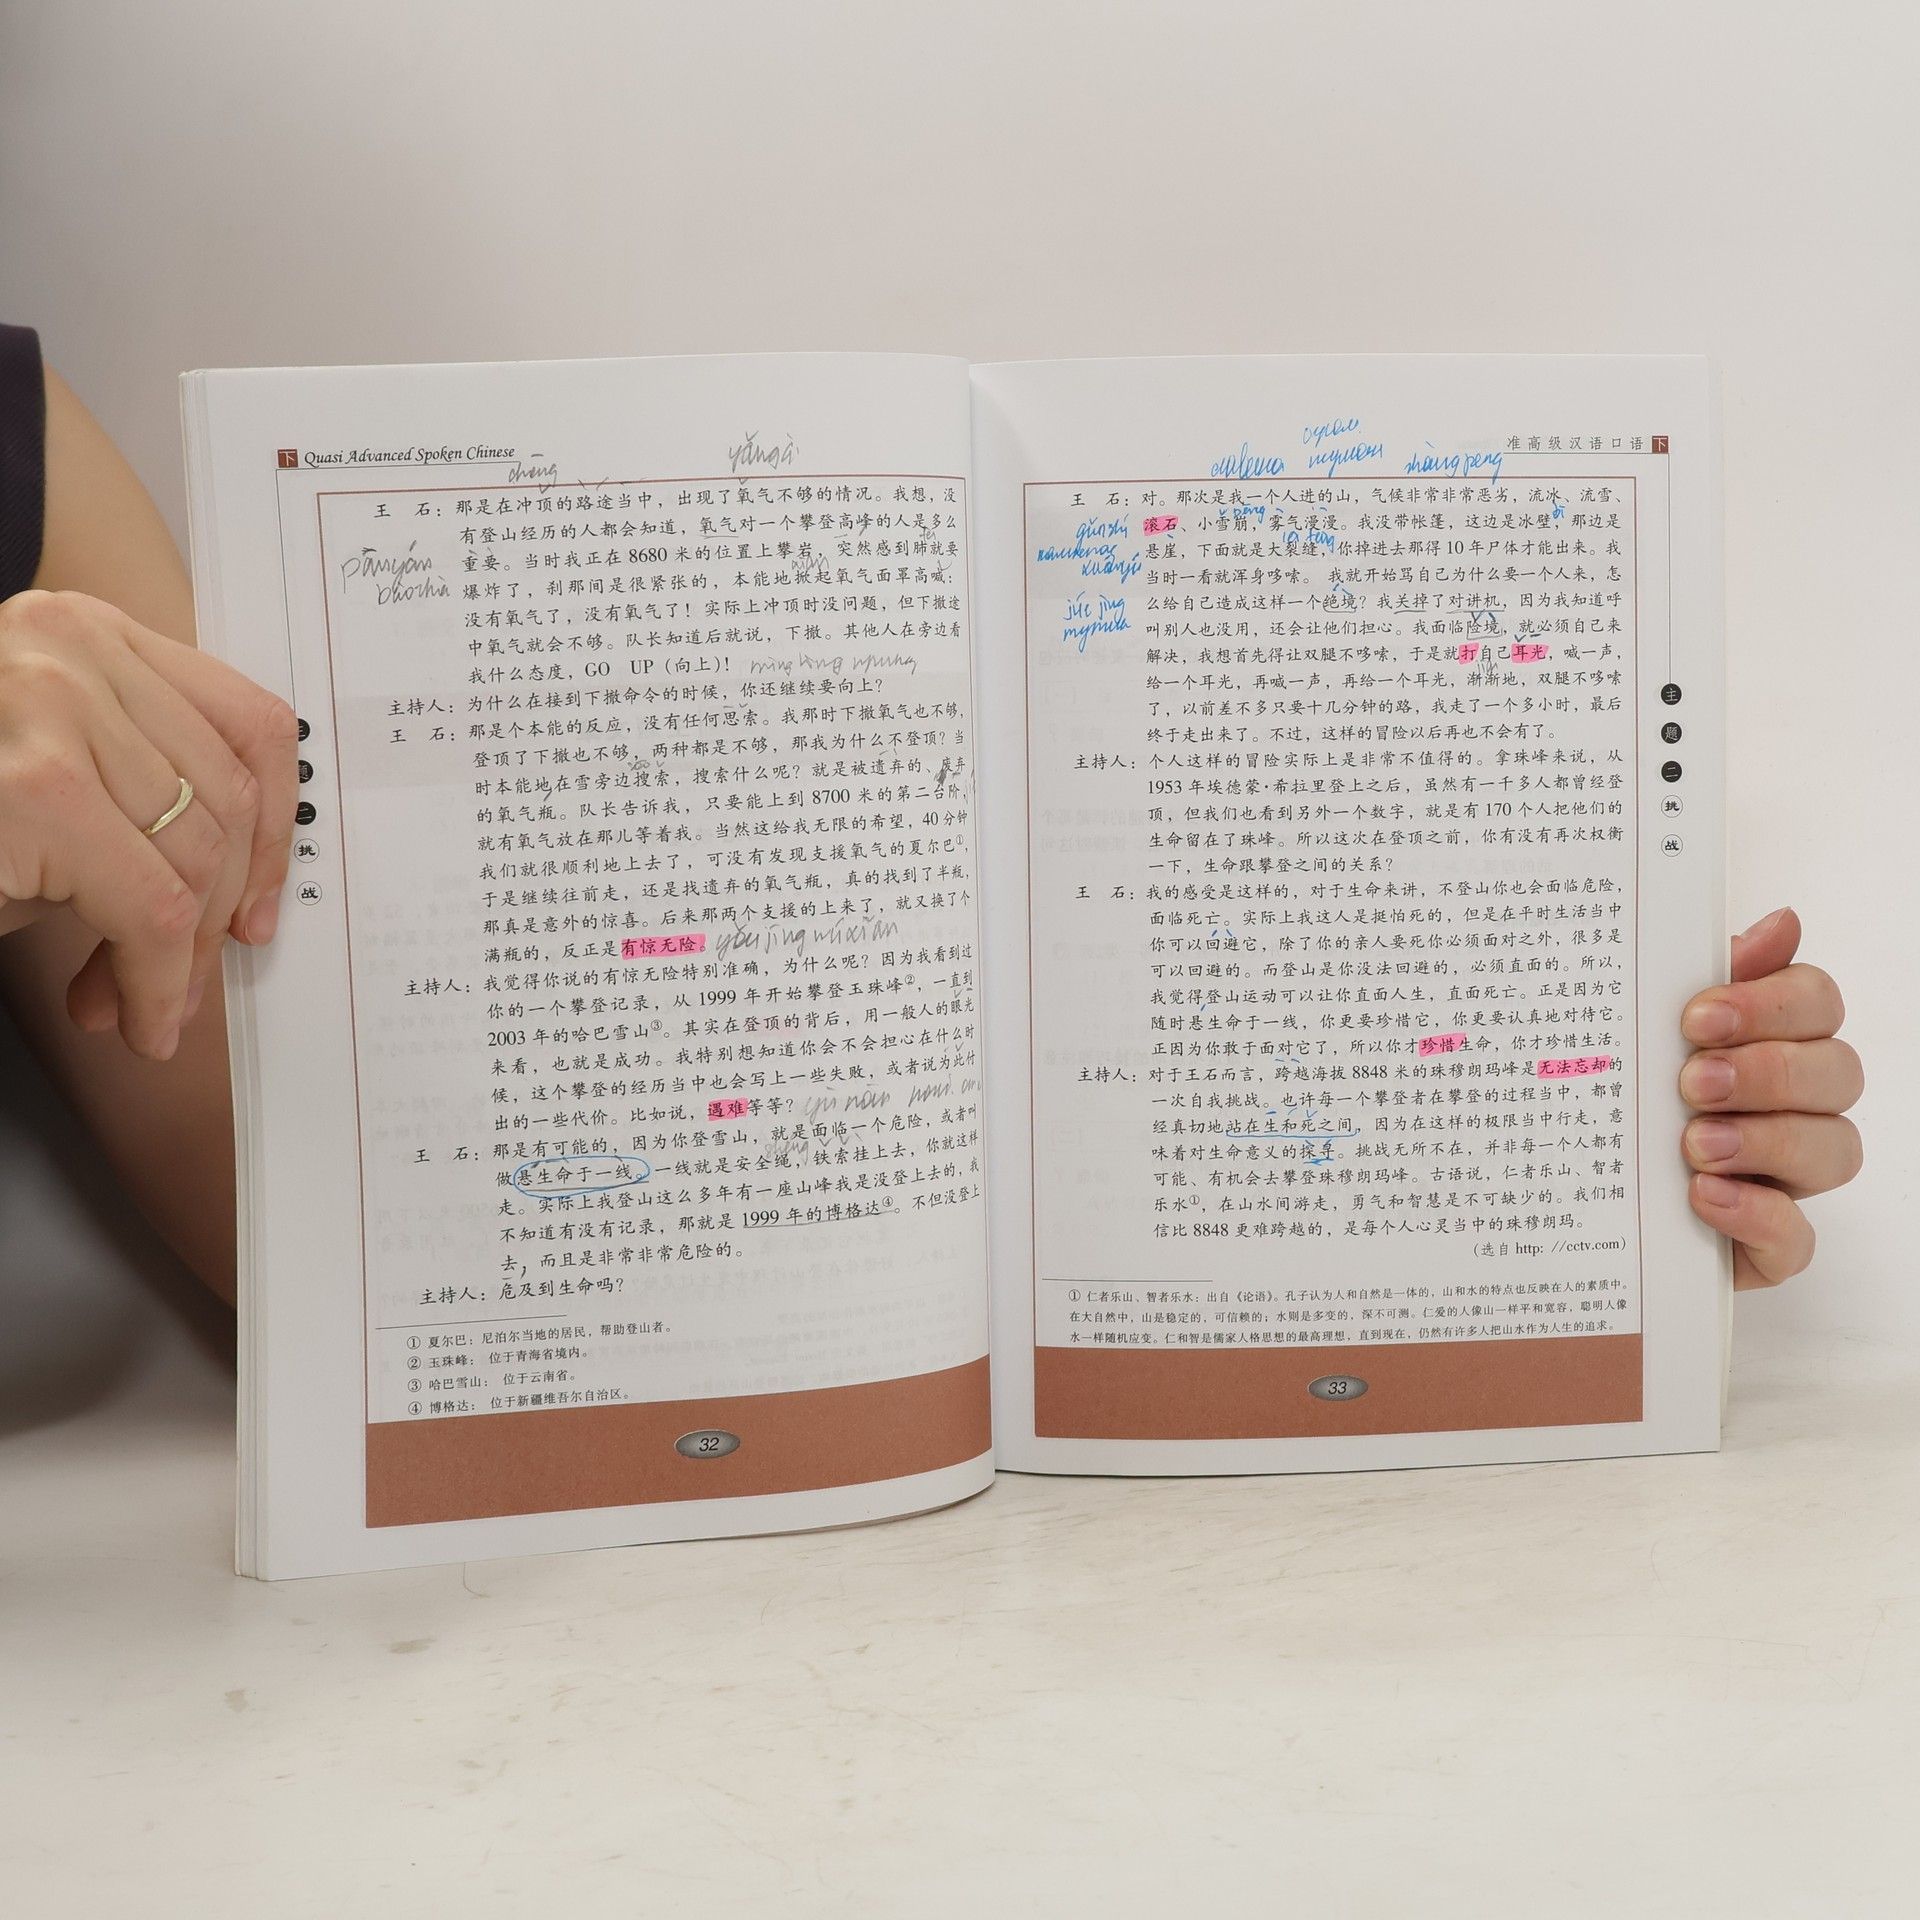 下 Quasi Advanced Spoken Chinese
chōng
yǎngqì
王　石：那是在冲顶的路途当中，出现了氧气不够的情况。我想，没
有登山经历的人都会知道，氧气对一个攀登高峰的人是多么
重要。当时我正在 8680 米的位置上攀岩，突然感到肺就要
pānyán
爆炸了，刹那间是很紧张的，本能地掀起氧气面罩高喊：
bàozhà
没有氧气了，没有氧气了！实际上冲顶时没问题，但下撤途
中氧气就会不够。队长知道后就说，下撤。其他人在旁边看
我什么态度，GO UP（向上）！
主持人：为什么在接到下撤命令的时候，你还继续要向上？
王　石：那是个本能的反应，没有任何思索。我那时下撤氧气也不够，
登顶了下撤也不够，两种都是不够，那我为什么不登顶？当
时本能地在雪旁边搜索，搜索什么呢？就是被遗弃的、废弃
的氧气瓶。队长告诉我，只要能上到 8700 米的第二台阶，
就有氧气放在那儿等着我。当然这给我无限的希望，40 分钟
我们就很顺利地上去了，可没有发现支援氧气的夏尔巴①，
于是继续往前走，还是找遗弃的氧气瓶，真的找到了半瓶，
那真是意外的惊喜。后来那两个支援的上来了，就又换了个
满瓶的，反正是有惊无险。 yǒu jīng wú xiǎn
主持人：我觉得你说的有惊无险特别准确，为什么呢？因为我看到过
你的一个攀登记录，从 1999 年开始攀登玉珠峰②，一直到
2003 年的哈巴雪山③。其实在登顶的背后，用一般人的眼光
来看，也就是成功。我特别想知道你会不会担心在什么时
候，这个攀登的经历当中也会写上一些失败，或者说为此付
出的一些代价。比如说，遇难等等？ yù nàn
王　石：那是有可能的，因为你登雪山，就是面临一个危险，或者叫
做悬生命于一线。一线就是安全绳，铁索挂上去，你就这样
走。实际上我登山这么多年有一座山峰我是没登上去的，我
不知道有没有记录，那就是 1999 年的博格达④。不但没登上
去，而且是非常非常危险的。
主持人：危及到生命吗？
① 夏尔巴：尼泊尔当地的居民，帮助登山者。
② 玉珠峰： 位于青海省境内。
③ 哈巴雪山： 位于云南省。
④ 博格达： 位于新疆维吾尔自治区。
32
主题二 挑战
准高级汉语口语 下
王　石：对。那次是我一个人进的山，气候非常非常恶劣，流冰、流雪、
滚石、小雪崩，雾气漫漫。我没带帐篷，这边是冰壁，那边是
gǔnshí
悬崖，下面就是大裂缝，你掉进去那得 10 年尸体才能出来。我
当时一看就浑身哆嗦。 我就开始骂自己为什么要一个人来，怎
么给自己造成这样一个绝境？我关掉了对讲机，因为我知道呼
叫别人也没用，还会让他们担心。我面临险境，就必须自己来
解决，我想首先得让双腿不哆嗦，于是就打自己耳光，喊一声，
给一个耳光，再喊一声，再给一个耳光，渐渐地，双腿不哆嗦
了，以前差不多只要十几分钟的路，我走了一个多小时，最后
终于走出来了。不过，这样的冒险以后再也不会有了。
主持人：个人这样的冒险实际上是非常不值得的。拿珠峰来说，从
1953 年埃德蒙·希拉里登上之后，虽然有一千多人都曾经登
顶，但我们也看到另外一个数字，就是有 170 个人把他们的
生命留在了珠峰。所以这次在登顶之前，你有没有再次权衡
一下，生命跟攀登之间的关系？
王　石：我的感受是这样的，对于生命来讲，不登山你也会面临危险，
面临死亡。实际上我这人是挺怕死的，但是在平时生活当中
你可以回避它，除了你的亲人要死你必须面对之外，很多是
可以回避的。而登山是你没法回避的，必须直面的。所以，
我觉得登山运动可以让你直面人生，直面死亡。正是因为它
随时悬生命于一线，你更要珍惜它，你更要认真地对待它。
正因为你敢于面对它了，所以你才珍惜生命，你才珍惜生活。
主持人：对于王石而言，跨越海拔 8848 米的珠穆朗玛峰是无法忘却的
一次自我挑战。也许每一个攀登者在攀登的过程当中，都曾
经真切地站在生和死之间，因为在这样的极限当中行走，意
味着对生命意义的探寻。挑战无所不在，并非每一个人都有
可能、有机会去攀登珠穆朗玛峰。古语说，仁者乐山、智者
乐水①，在山水间游走，勇气和智慧是不可缺少的。我们相
信比 8848 更难跨越的，是每个人心灵当中的珠穆朗玛。
（选自 http: //cctv.com）
① 仁者乐山、智者乐水：出自《论语》。孔子认为人和自然是一体的，山和水的特点也反映在人的素质中。
在大自然中，山是稳定的，可信赖的；水则是多变的，深不可测。仁爱的人像山一样平和宽容，聪明人像
水一样随机应变。仁和智是儒家人格思想的最高理想，直到现在，仍然有许多人把山水作为人生的追求。
33
主题二 挑战